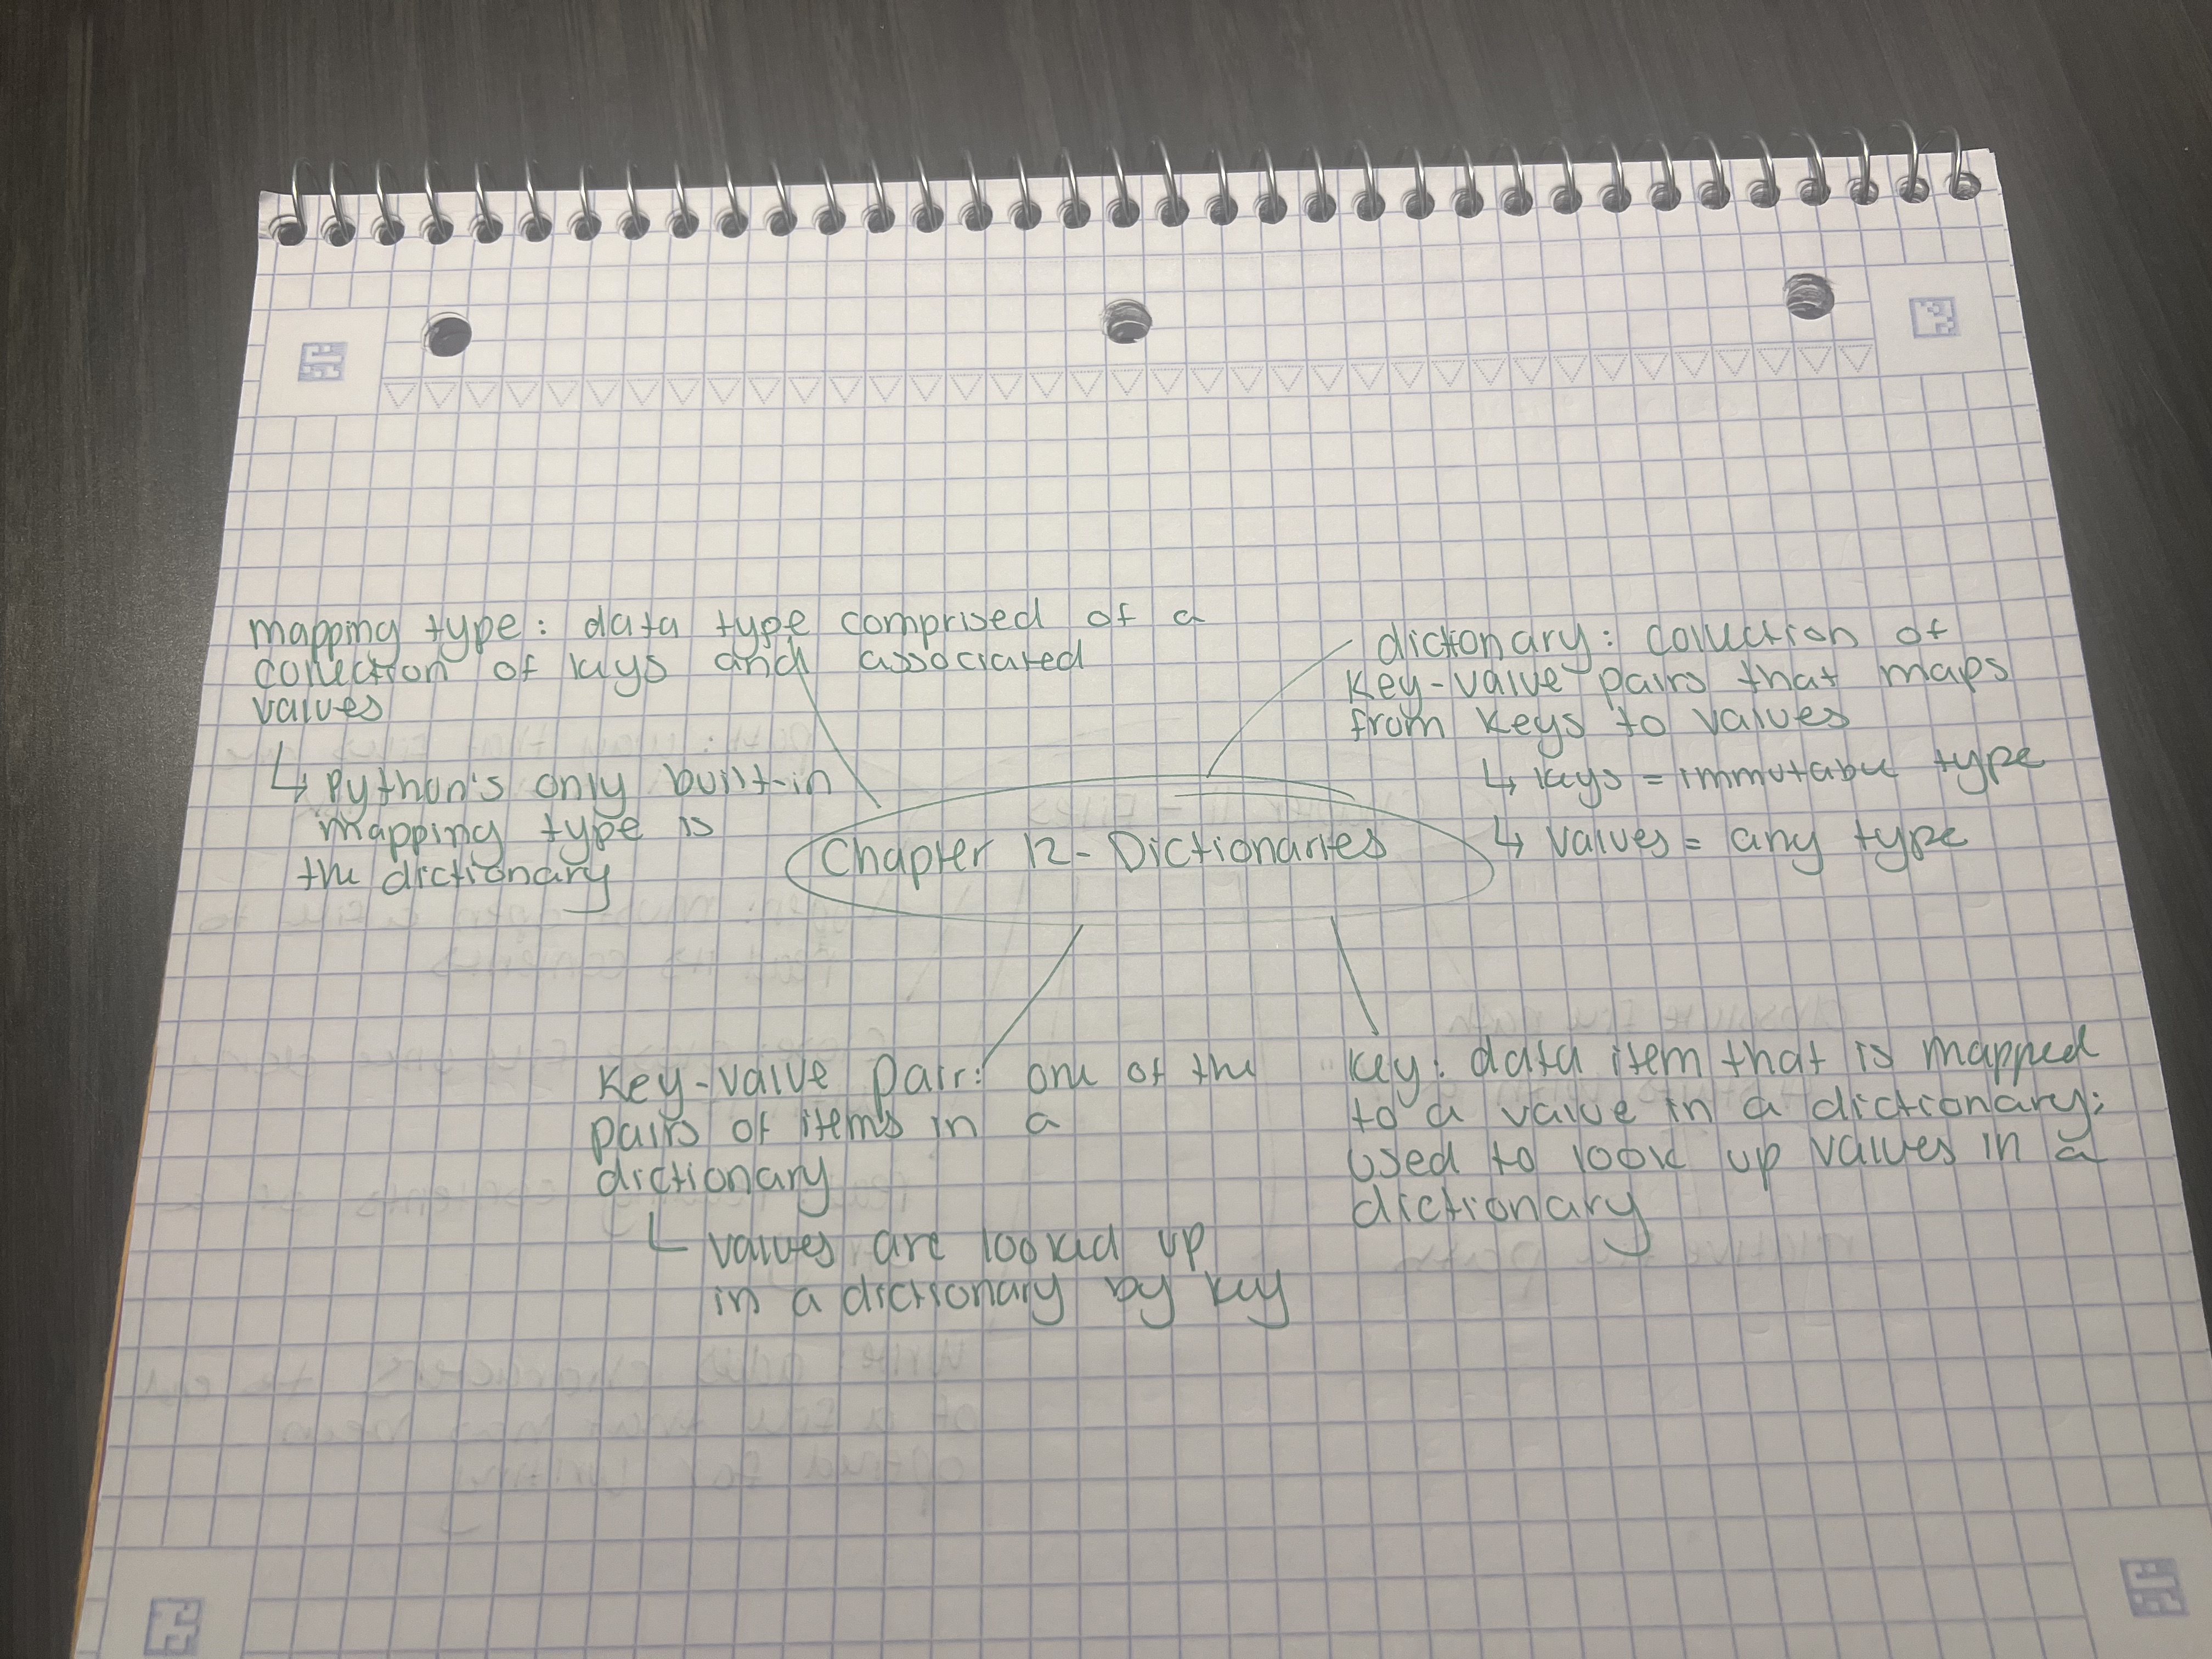 mapping type: data type comprised of a
collection of keys and associated
values
↳ Python's only built-in
mapping type is
the dictionary
dictionary: collection of
key-value pairs that maps
from keys to values
↳ keys = immutable type
↳ values = any type
Chapter 12- Dictionaries
Key-value pair: one of the
pairs of items in a
dictionary
values are looked up
in a dictionary by key
key: data item that is mapped
to a value in a dictionary;
used to look up values in a
dictionary